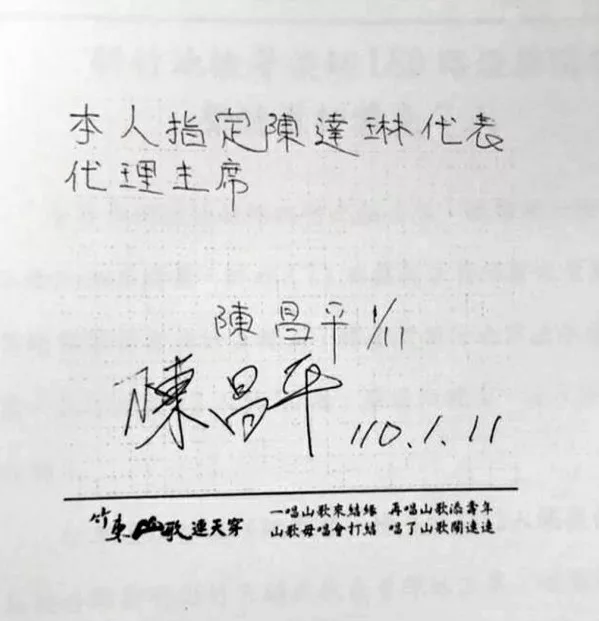 本人指定陳達琳代表
代理主席
陳昌平 1/11
陳昌平 110.1.11
竹東山歌連天穿
一唱山歌來結緣 再唱山歌添壽年
山歌毋唱會打結 唱了山歌鬧連連